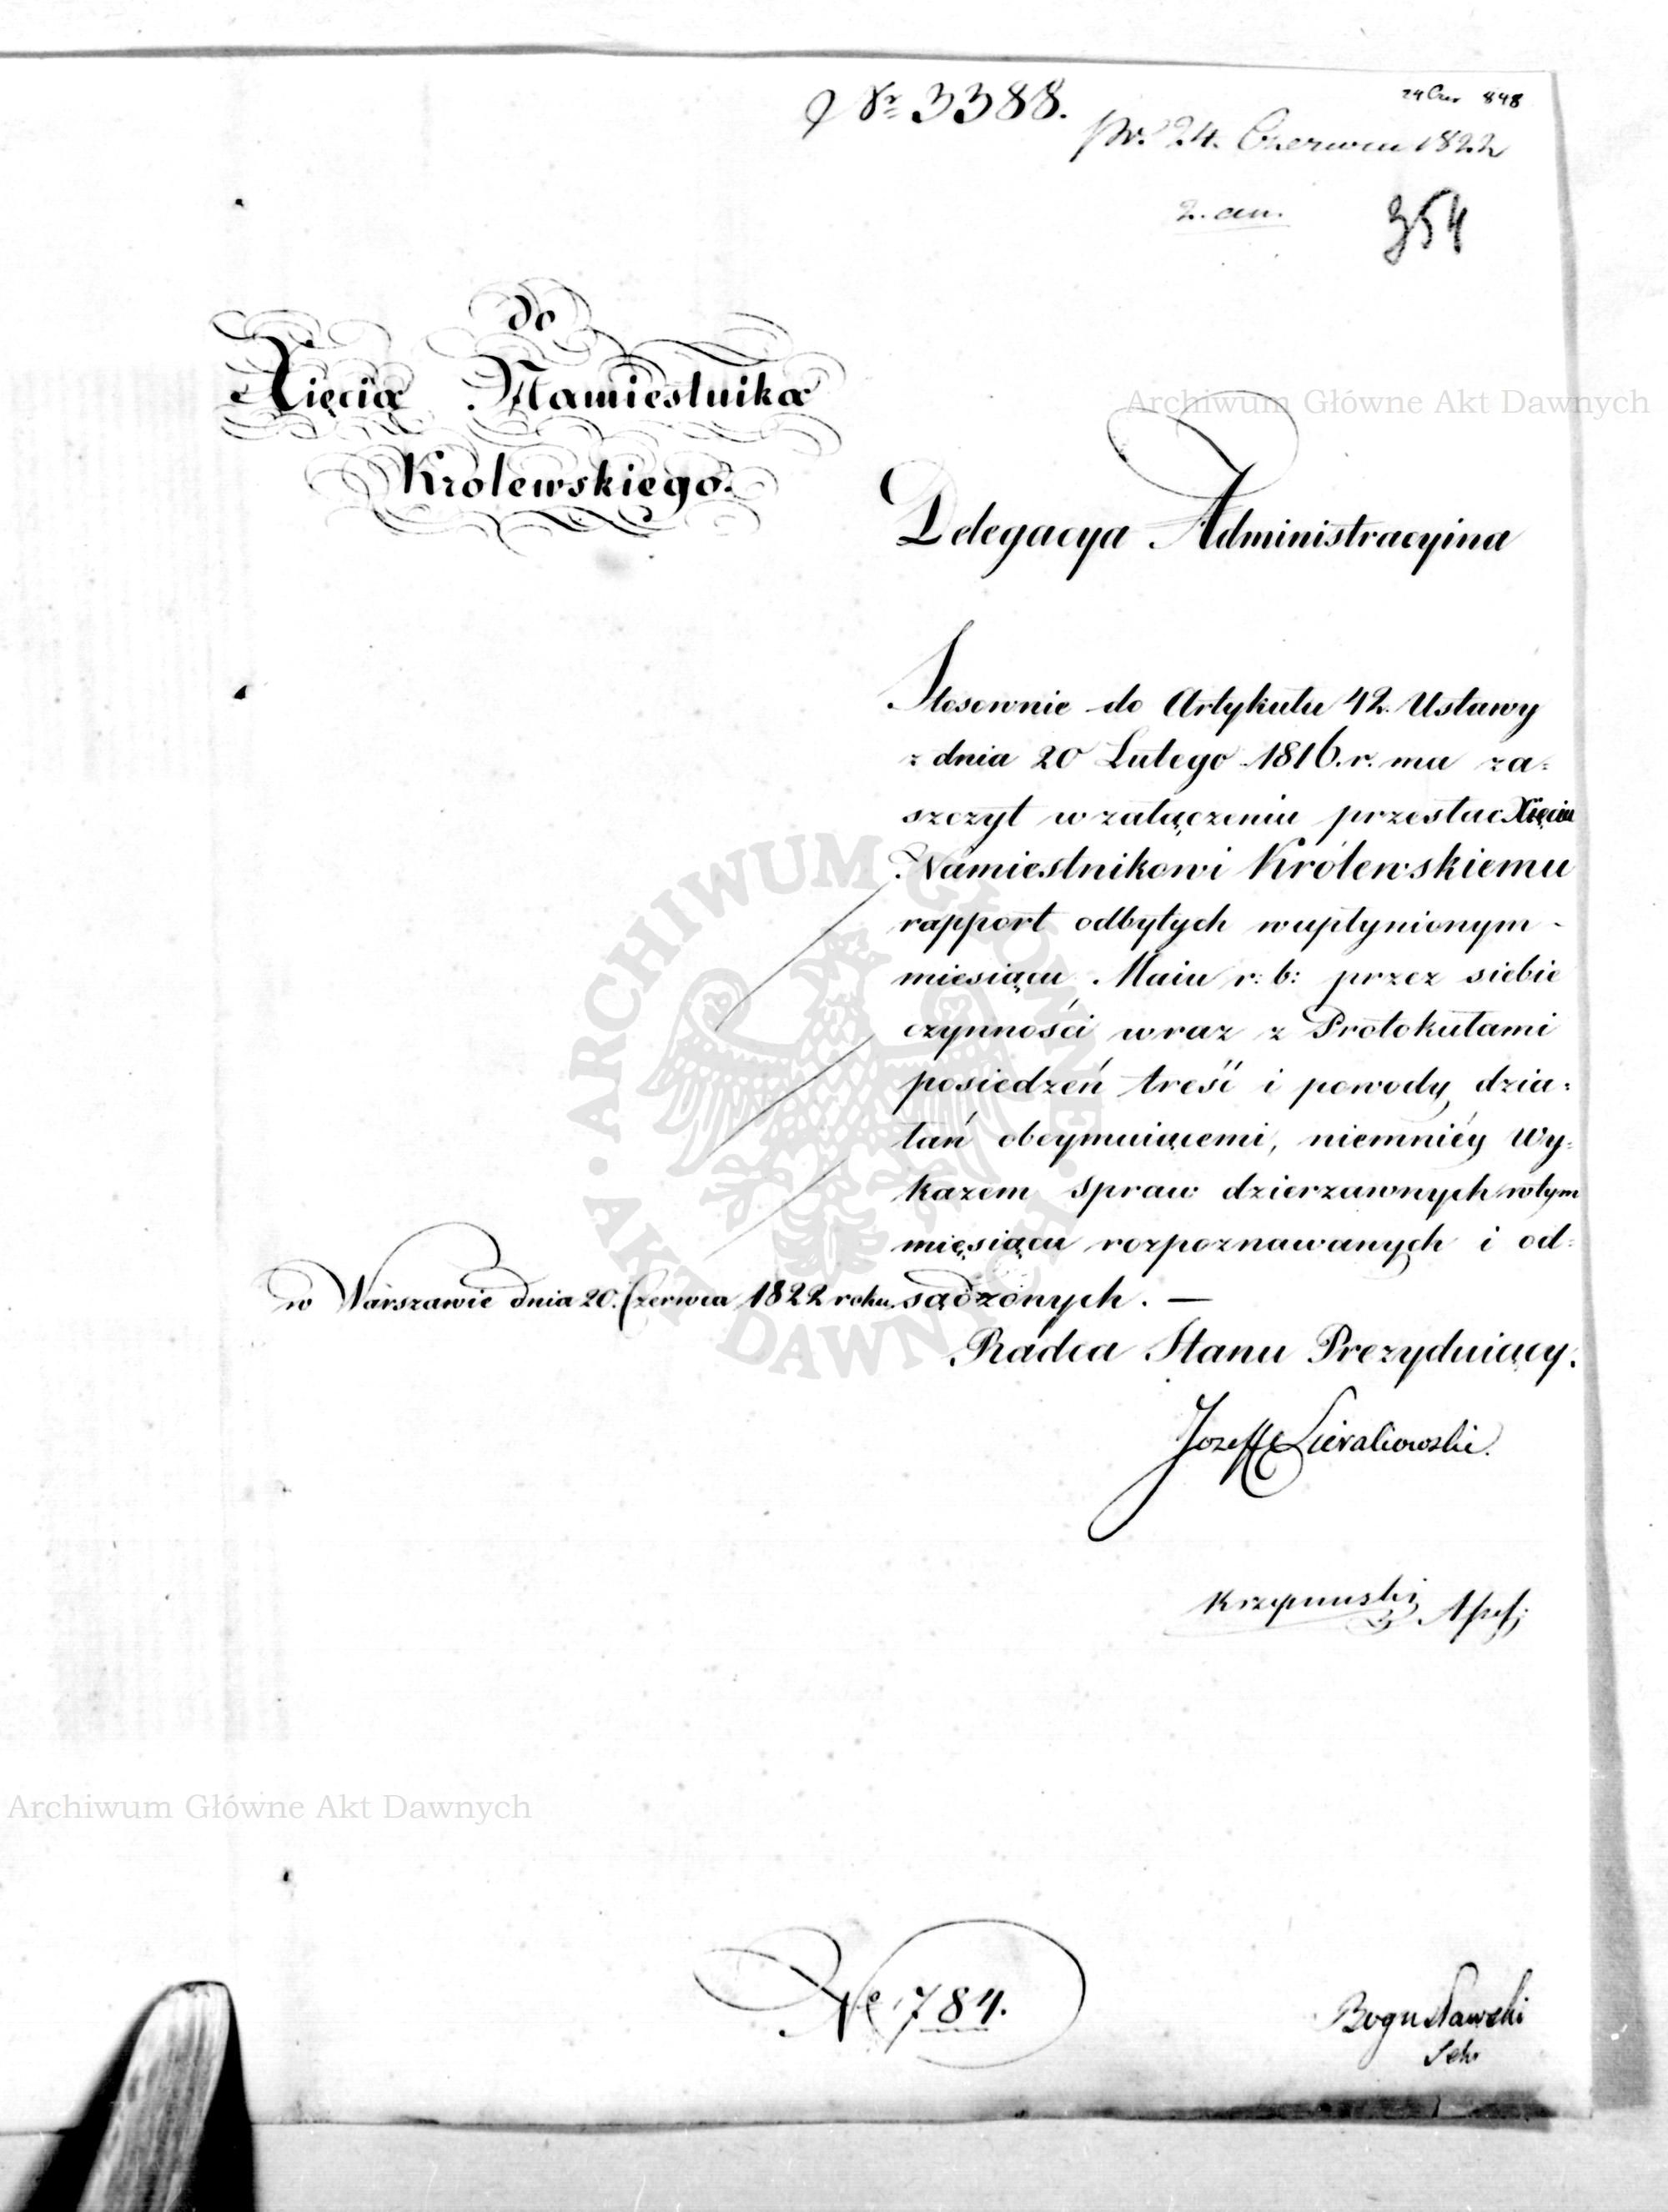 Nr 3388.
848
pr. 24. Czerwca 1822
2. an.
354
do
Xięcia Namiestnika
Królewskiego.
Archiwum Główne Akt Dawnych
Delegacya Administracyina
Stosownie do Artykułu 42. Ustawy
z dnia 20 Lutego 1816. r. ma za=
szczyt w załączeniu przesłać Xięciu
Namiestnikowi Królewskiemu
rapport odbytych w upłynionym
miesiącu Maiu r: b: przez siebie
czynności wraz z Protokułami
posiedzeń treść i powody dzia=
łań obeymuiącemi, niemniéy Wy=
kazem spraw dzierzawnych w tym
miesiącu rozpoznawanych i od=
sądzonych. —
w Warszawie dnia 20. Czerwca 1822 roku
Radca Stanu Prezyduiący.
Jozeff Sierakowski.
Krzymuski
ARCHIWUM GŁÓWNE AKT DAWNYCH
Archiwum Główne Akt Dawnych
No 784.
Bogusławski
Sekr